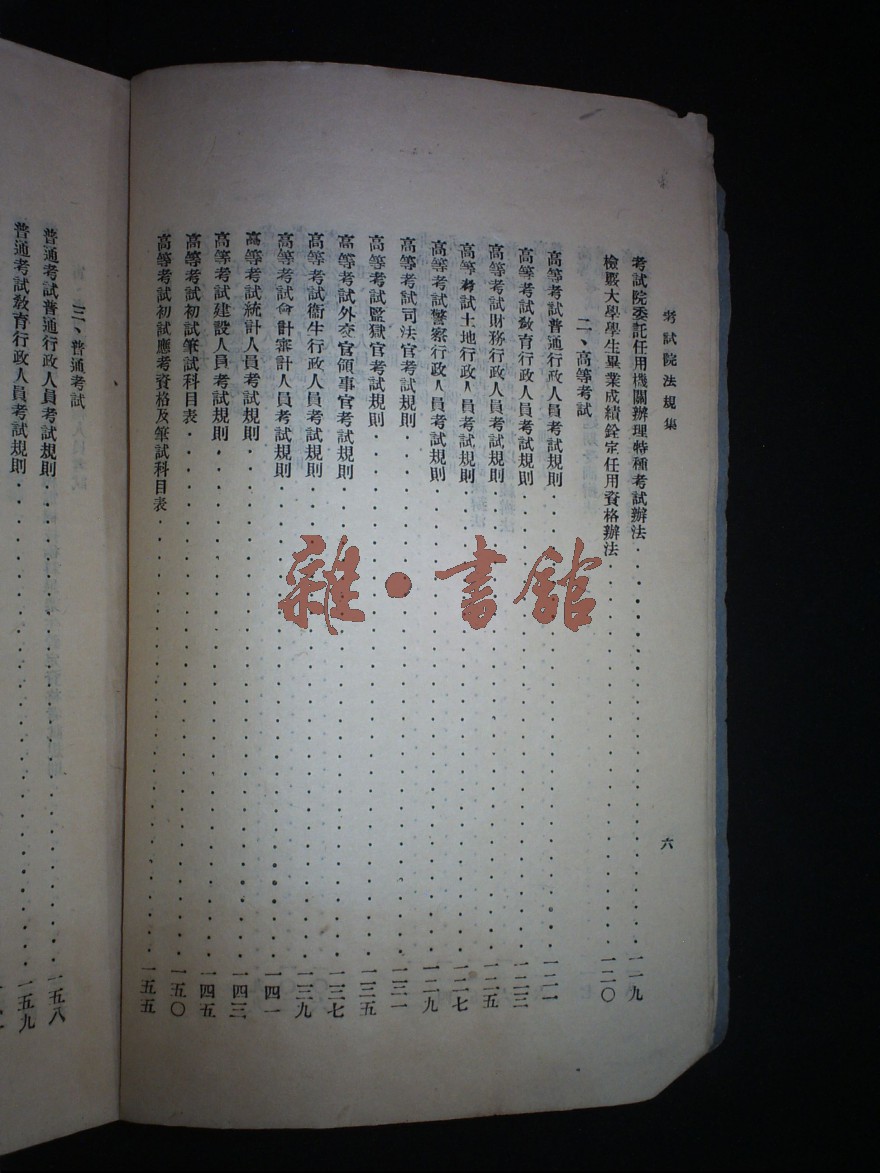 考試院法規集
六
考試院委託任用機關辦理特種考試辦法 一一九
檢覈大學學生畢業成績銓定任用資格辦法 一二〇
二、高等考試
高等考試普通行政人員考試規則 一二一
高等考試教育行政人員考試規則 一二三
高等考試財務行政人員考試規則 一二五
高等考試土地行政人員考試規則 一二七
高等考試警察行政人員考試規則 一二九
高等考試司法官考試規則 一三一
高等考試監獄官考試規則 一三五
高等考試外交官領事官考試規則 一三七
高等考試衞生行政人員考試規則 一三九
高等考試會計審計人員考試規則 一四一
高等考試統計人員考試規則 一四三
高等考試建設人員考試規則 一四五
高等考試初試筆試科目表 一五〇
高等考試初試應考資格及筆試科目表 一五五
三、普通考試
普通考試普通行政人員考試規則 一五八
普通考試教育行政人員考試規則 一五九
雜·書館